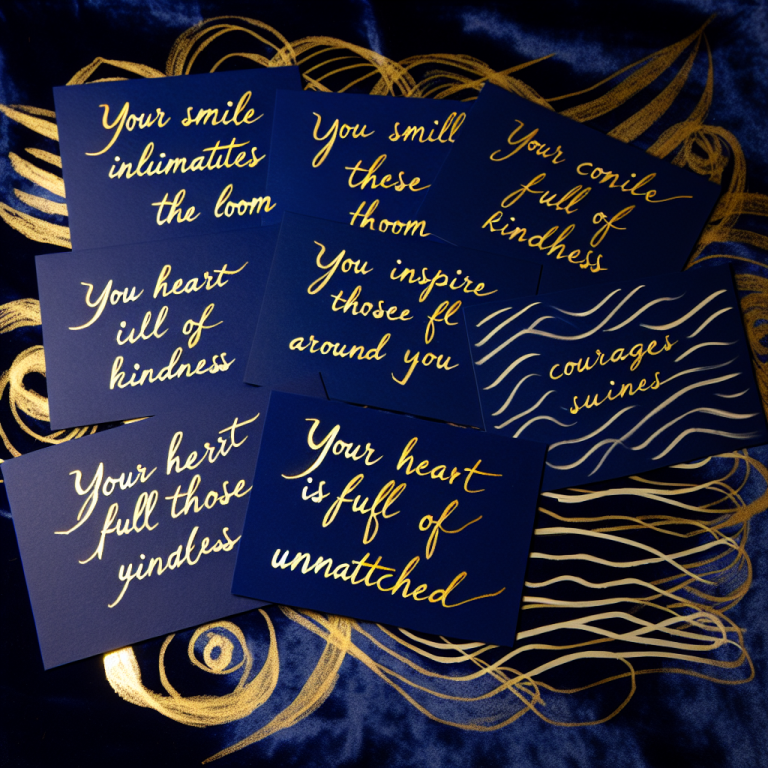 Your smile
inluimatites
the loom
You smill
these
thoom
Your conile
full of
kindhess
You heart
iull of
kindness
You inspire
thosee fl
around you
courages
suines
Your herrt
full those
yindless
Your heart
is full of
unnattched